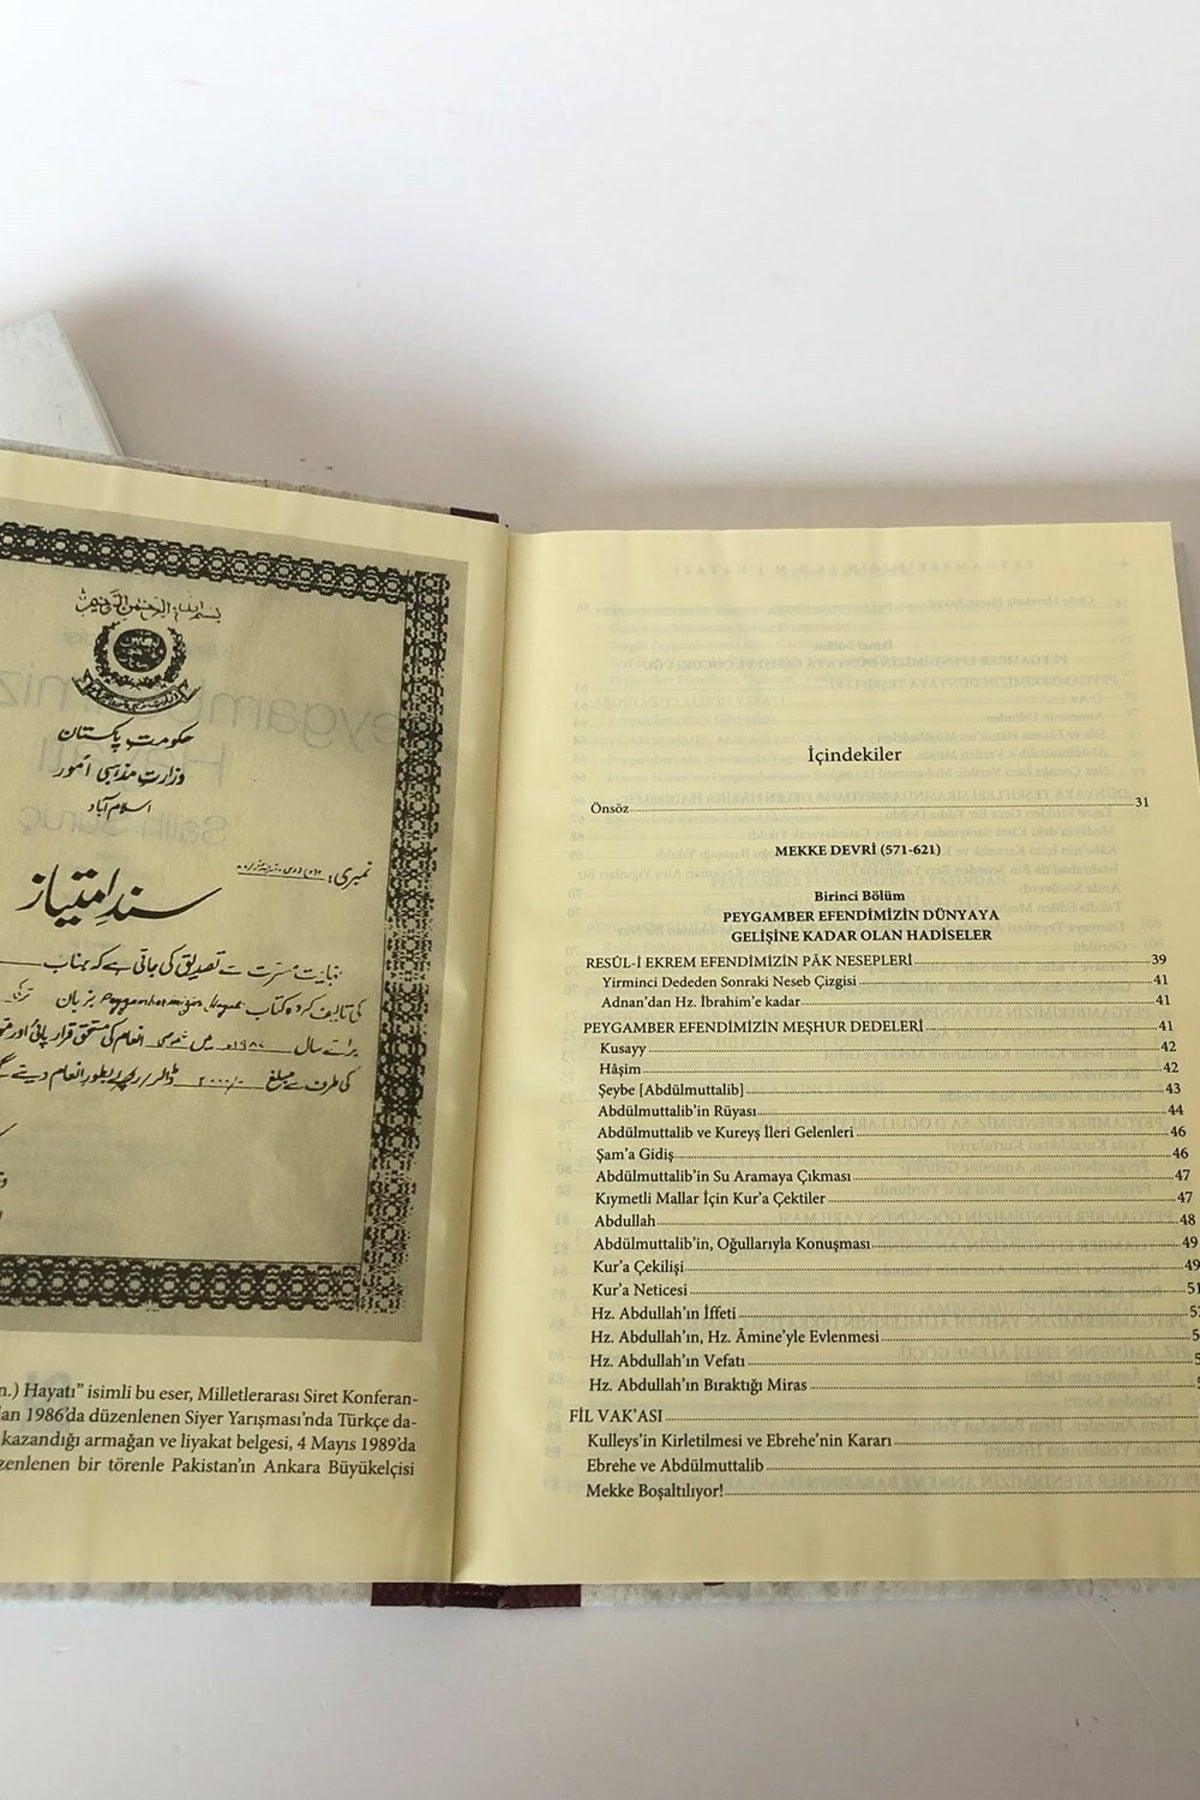 بسم الله الرحمن الرحيم
حکومتِ پاکستان
وزارتِ مذہبی اُمور
اسلام آباد
نمبری:
سندِ امتیاز
نہایت مسرت سے تصدیق کی جاتی ہے کہ جناب
کی تالیف کردہ کتاب Peygamberimizin Hayatı بزبان ترکی
برائے سال ۱۹۸۰ میں انعام کی مستحق قرار پائی اور
کی طرف سے مبلغ ۲۰۰۰/- ڈالر/روپے بطور انعام دیئے
n.) Hayatı” isimli bu eser, Milletlerarası Siret Konferan-
an 1986’da düzenlenen Siyer Yarışması’nda Türkçe da-
kazandığı armağan ve liyakat belgesi, 4 Mayıs 1989’da
zenlenen bir törenle Pakistan’ın Ankara Büyükelçisi
İçindekiler
Önsöz 31
MEKKE DEVRİ (571-621)
Birinci Bölüm
PEYGAMBER EFENDİMİZİN DÜNYAYA
GELİŞİNE KADAR OLAN HADİSELER
RESÛL-İ EKREM EFENDİMİZİN PÂK NESEPLERİ 39
Yirminci Dededen Sonraki Neseb Çizgisi 41
Adnan’dan Hz. İbrahim’e kadar 41
PEYGAMBER EFENDİMİZİN MEŞHUR DEDELERİ 41
Kusayy 42
Hâşim 42
Şeybe [Abdülmuttalib] 43
Abdülmuttalib’in Rüyası 44
Abdülmuttalib ve Kureyş İleri Gelenleri 46
Şam’a Gidiş 46
Abdülmuttalib’in Su Aramaya Çıkması 47
Kıymetli Mallar İçin Kur’a Çektiler 47
Abdullah 48
Abdülmuttalib’in, Oğullarıyla Konuşması 49
Kur’a Çekilişi 49
Kur’a Neticesi 51
Hz. Abdullah’ın İffeti 5
Hz. Abdullah’ın, Hz. Âmine’yle Evlenmesi 5
Hz. Abdullah’ın Vefatı
Hz. Abdullah’ın Bıraktığı Miras
FİL VAK’ASI
Kulleys’in Kirletilmesi ve Ebrehe’nin Kararı
Ebrehe ve Abdülmuttalib
Mekke Boşaltılıyor!